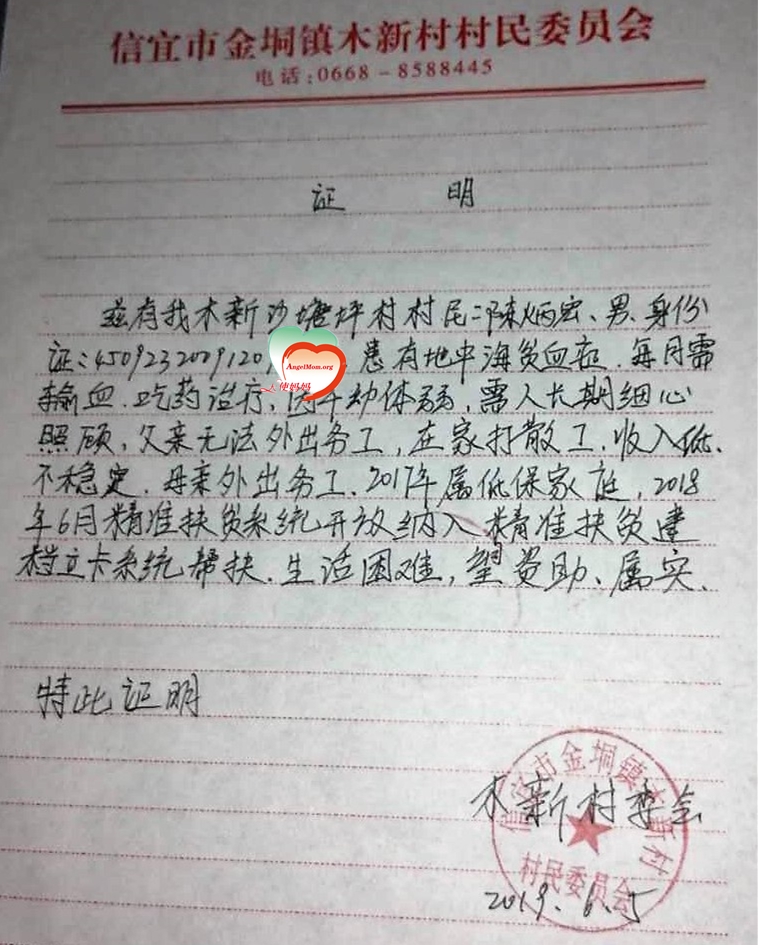 信宜市金垌镇木新村村民委员会
电话:0668-8588445
证 明
兹有我木新沙塘坪村村民:陈炳宏、男、身份
证:4509232009120
AngelMom.org
天使妈妈
患有地中海贫血症.每月需
输血.吃药治疗,因年幼体弱,需人长期细心
照顾,父亲无法外出务工,在家打散工.收入低、
不稳定.母亲外出务工、2017年属低保家庭,2018
年6月精准扶贫系统开放纳入精准扶贫建
档立卡系统帮扶.生活困难,望资助、属实、
特此证明
木新村委会
2019.6.5
信宜市金垌镇木新村
村民委员会